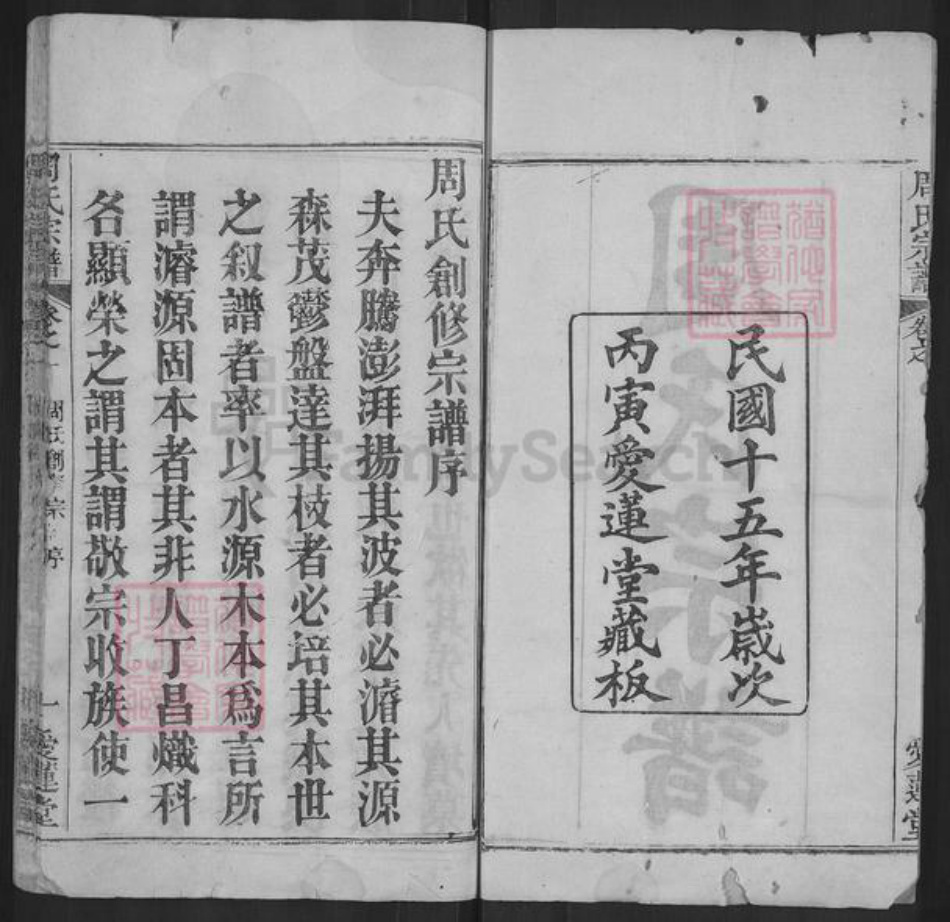 周氏宗譜
卷之
愛蓮堂
民國十五年歲次
丙寅愛蓮堂藏板
周氏創修宗譜序
夫奔騰澎湃揚其波者必濬其源
森茂鬱盤達其枝者必培其本世
之叙譜者率以水源木本爲言所
謂濬源固本者其非人丁昌熾科
名顯榮之謂其謂敬宗收族使一
周氏宗譜
卷之一
周氏創修宗譜序
一
愛蓮堂
FamilySearch